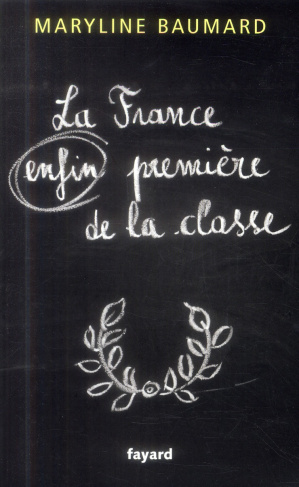 MARYLINE BAUMARD
La France
enfin première
de la classe
fayard